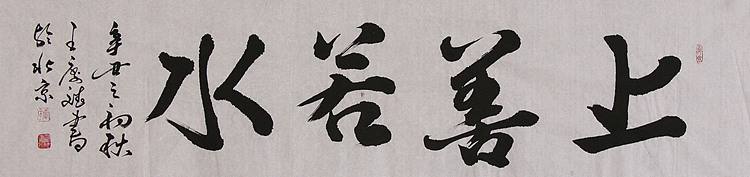 上善若水
辛丑之初秋
王庆斌書
於北京